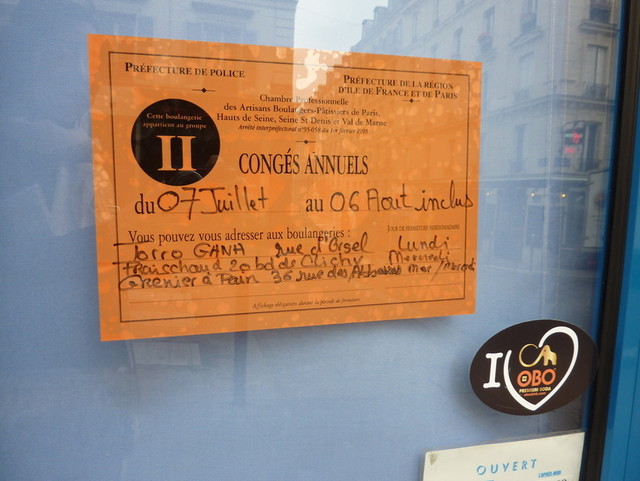 PRÉFECTURE DE POLICE
PRÉFECTURE DE LA RÉGION
D'ILE DE FRANCE ET DE PARIS
Chambre Professionnelle
des Artisans Boulangers-Pâtissiers de Paris,
Hauts de Seine, Seine St Denis et Val de Marne
Arrêté interpréfectoral n°95-658 du 1er février 1995
Cette boulangerie
appartient au groupe
II
CONGÉS ANNUELS
du 07 Juillet au 06 Aout inclus
Vous pouvez vous adresser aux boulangeries :
JOUR DE FERMETURE HEBDOMADAIRE
Torro GANA rue d'Orsel Lundi
Fraischaud 20 bd de Clichy Mercredi
Grenier à Pain 36 rue des Abbesses Mar/Mercredi
Affichage obligatoire durant la période de fermeture
I
OBO
PREMIUM SODA
OUVERT
L'APRES-MIDI